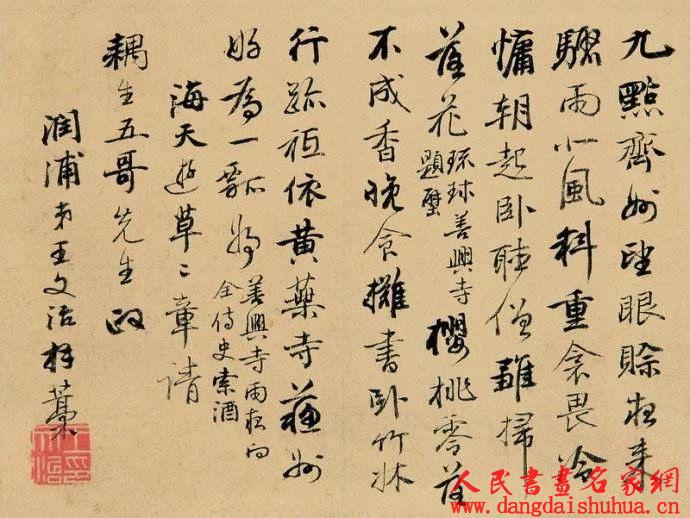 九點齊州望眼賖夜來
驟雨風斜重衾畏冷
慵朝起卧聽僧雛掃
落花 琉球善興寺
題壁 櫻桃零落
不成香晚食攤書卧竹牀
行跡祗依黃蘗寺蘇州
好為一瓢 善興寺雨夜向
全侍史索酒
海天遊草二章請
耦生五哥先生政
潤浦弟王文治拜藁
人民書畫名家網
www.dangdaishuhua.cn